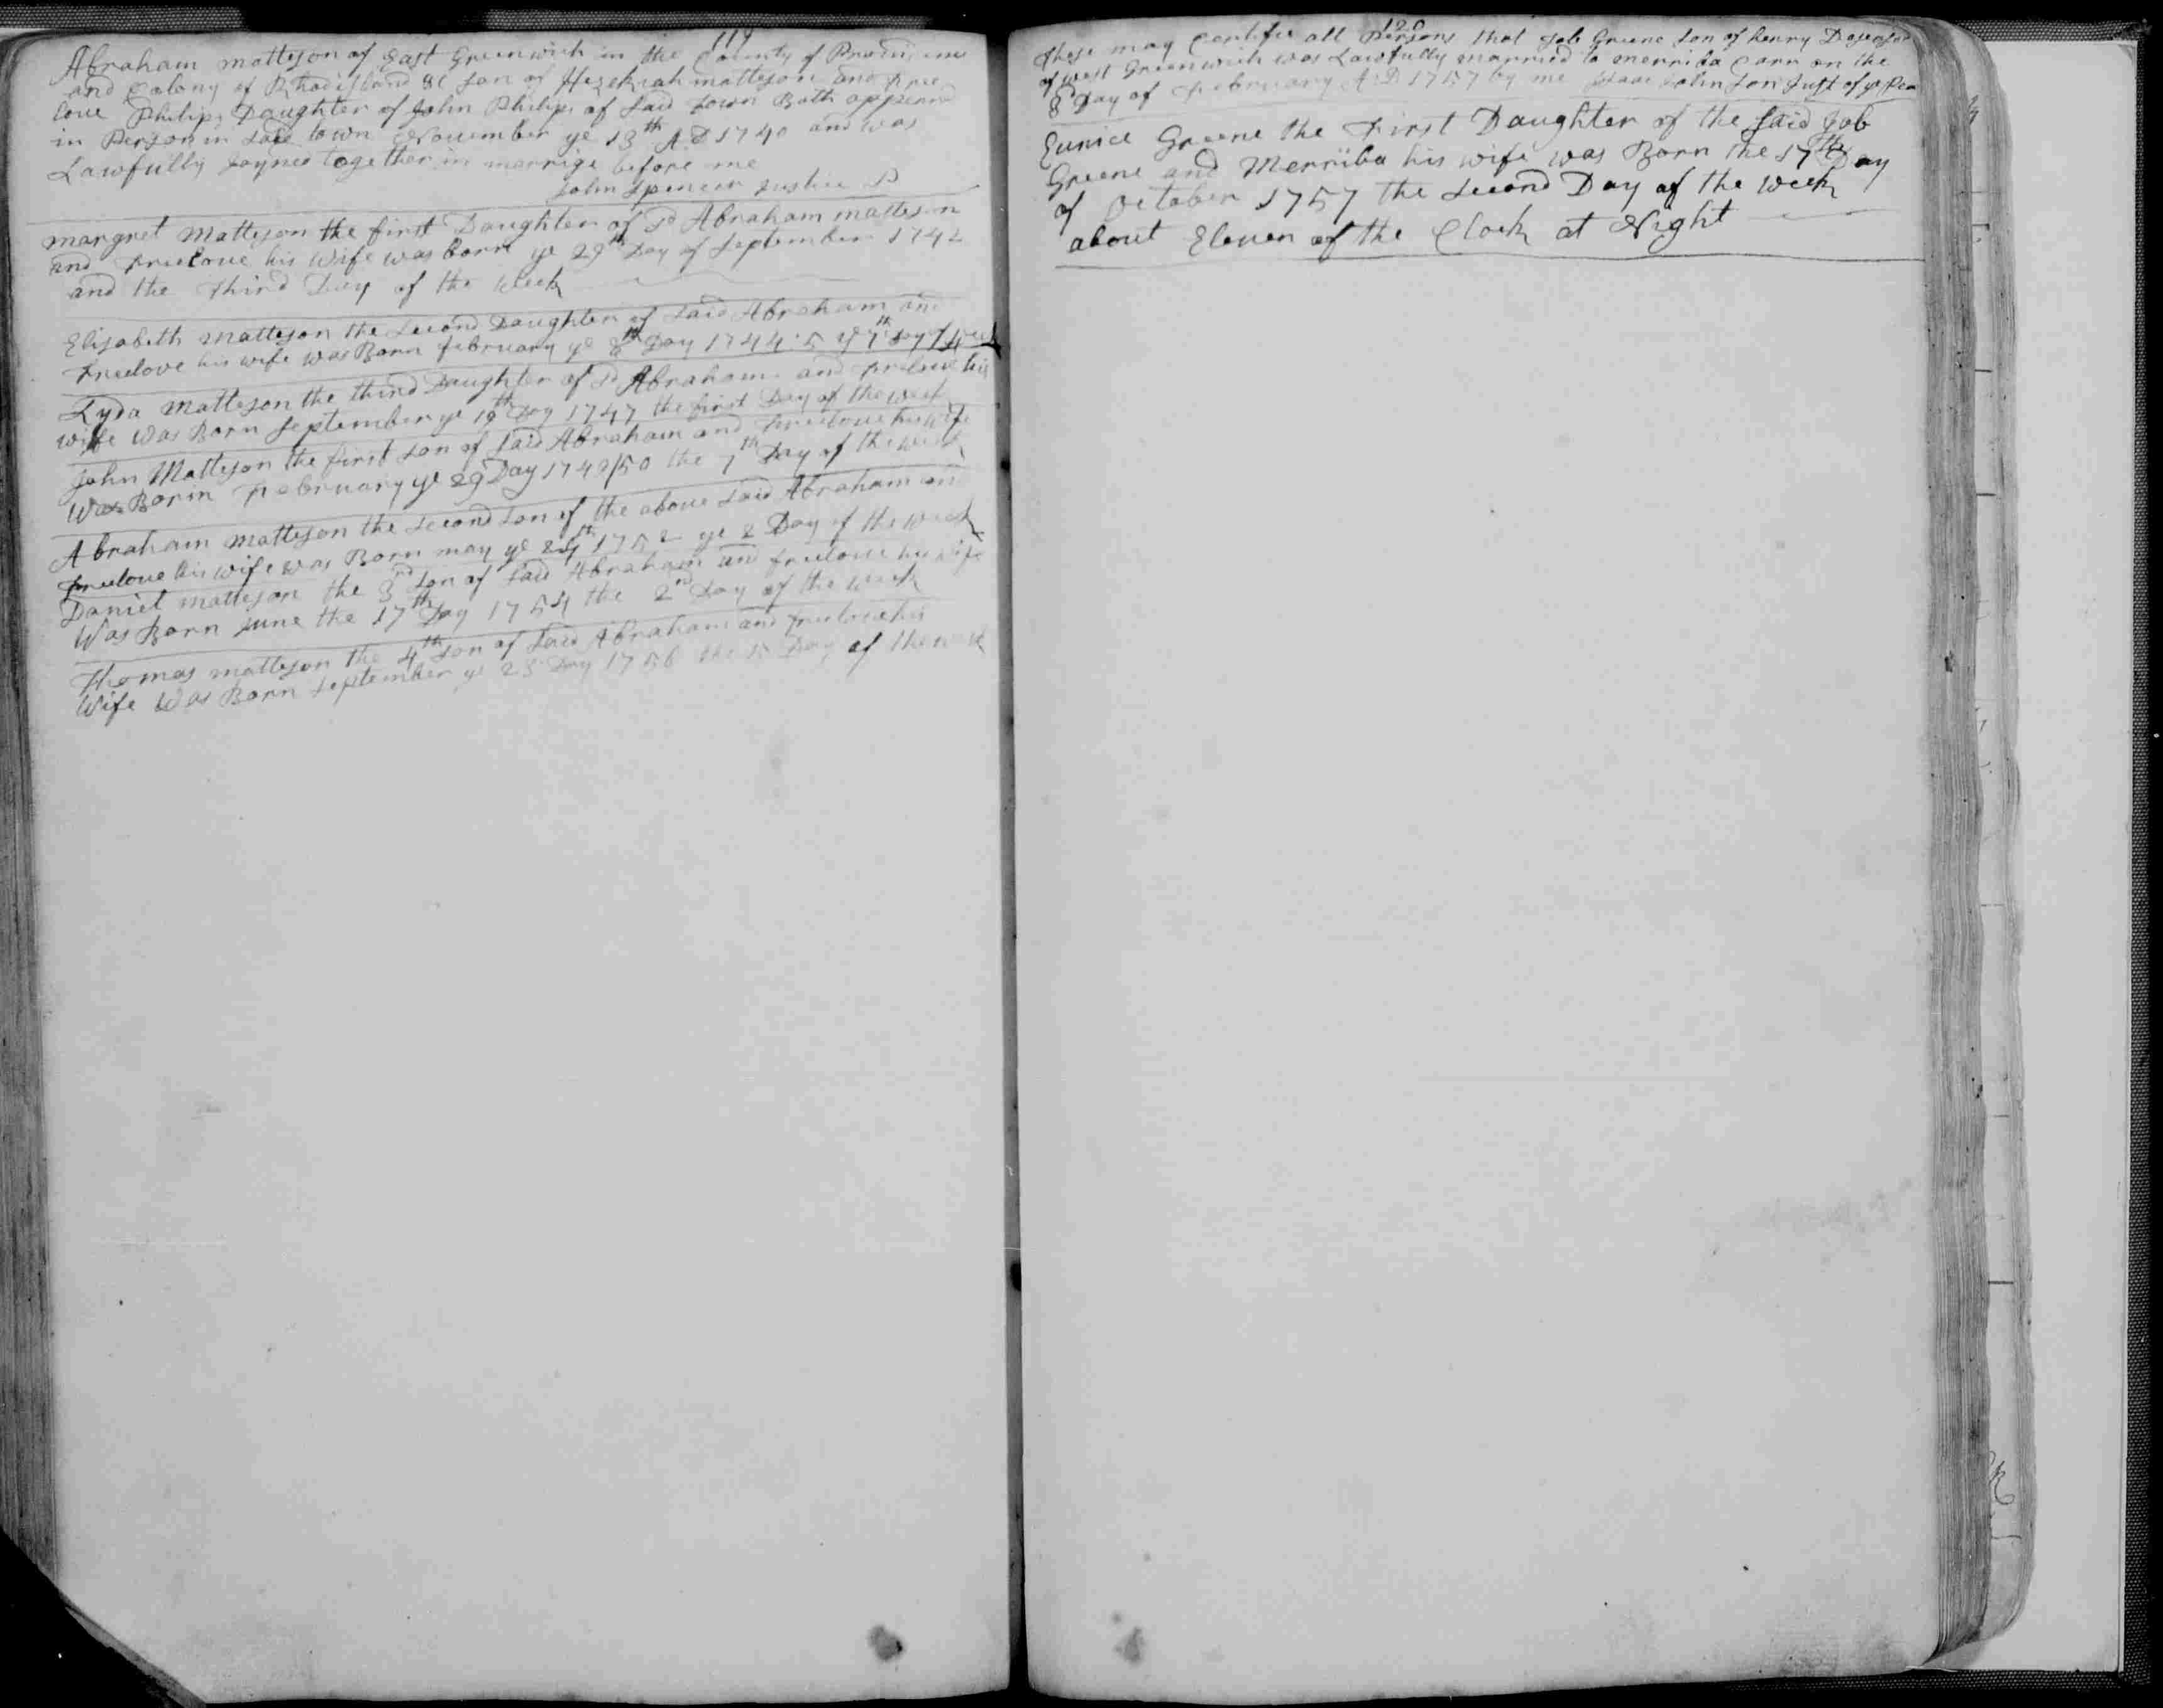 119
Abraham matteson of East Greenwich in the County of Providence
and Colony of Rhodisland &c son of Hezekiah matteson and Free
love Philips Daughter of John Philips of Said town Both appeared
in Person in said town November ye 13th AD 1740 and was
Lawfully Joyned together in marrige before me
John Spencer Justice P
margret Matteson the first Daughter of sd Abraham matteson
and Freelove his wife was born ye 29th Day of September 1742
and the third Day of the week
Elisabeth Matteson the Second Daughter of said Abraham and
Freelove his wife was Born february ye 8th Day 1744:5 ye 7th Day of week
Lyda Matteson the third Daughter of sd Abraham and frelove his
wife was Born September ye 19th Day 1747 the first Day of the week
John Matteson the first son of said Abraham and freelove his wife
Was Born February ye 29 Day 1749/50 the 7th Day of the week
Abraham matteson the second son of the above said Abraham and
freelove his wife was Born may ye 1752 ye 2 Day of the week
Daniel matteson the 3rd son of said Abraham and freelove his wife
Was Born June the 17th Day 1754 the 2nd Day of the week
Thomas matteson the 4th son of said Abraham and freelove his
Wife Was Born September ye 23 Day 1756 the 5 Day of the week
120
These may Certifie all Persons that Job Greene son of henry Deses'd
of west Greenwich was Lawfully married to merriba Carr on the
8th Day of February A:D 1757 by me Isaac Johnson Just of ye Pea
Eunice Greene the First Daughter of the said Job
Greene and Merriba his wife was Born the 17th Day
of October 1757 the second Day of the week
about Eleven of the Clock at Night